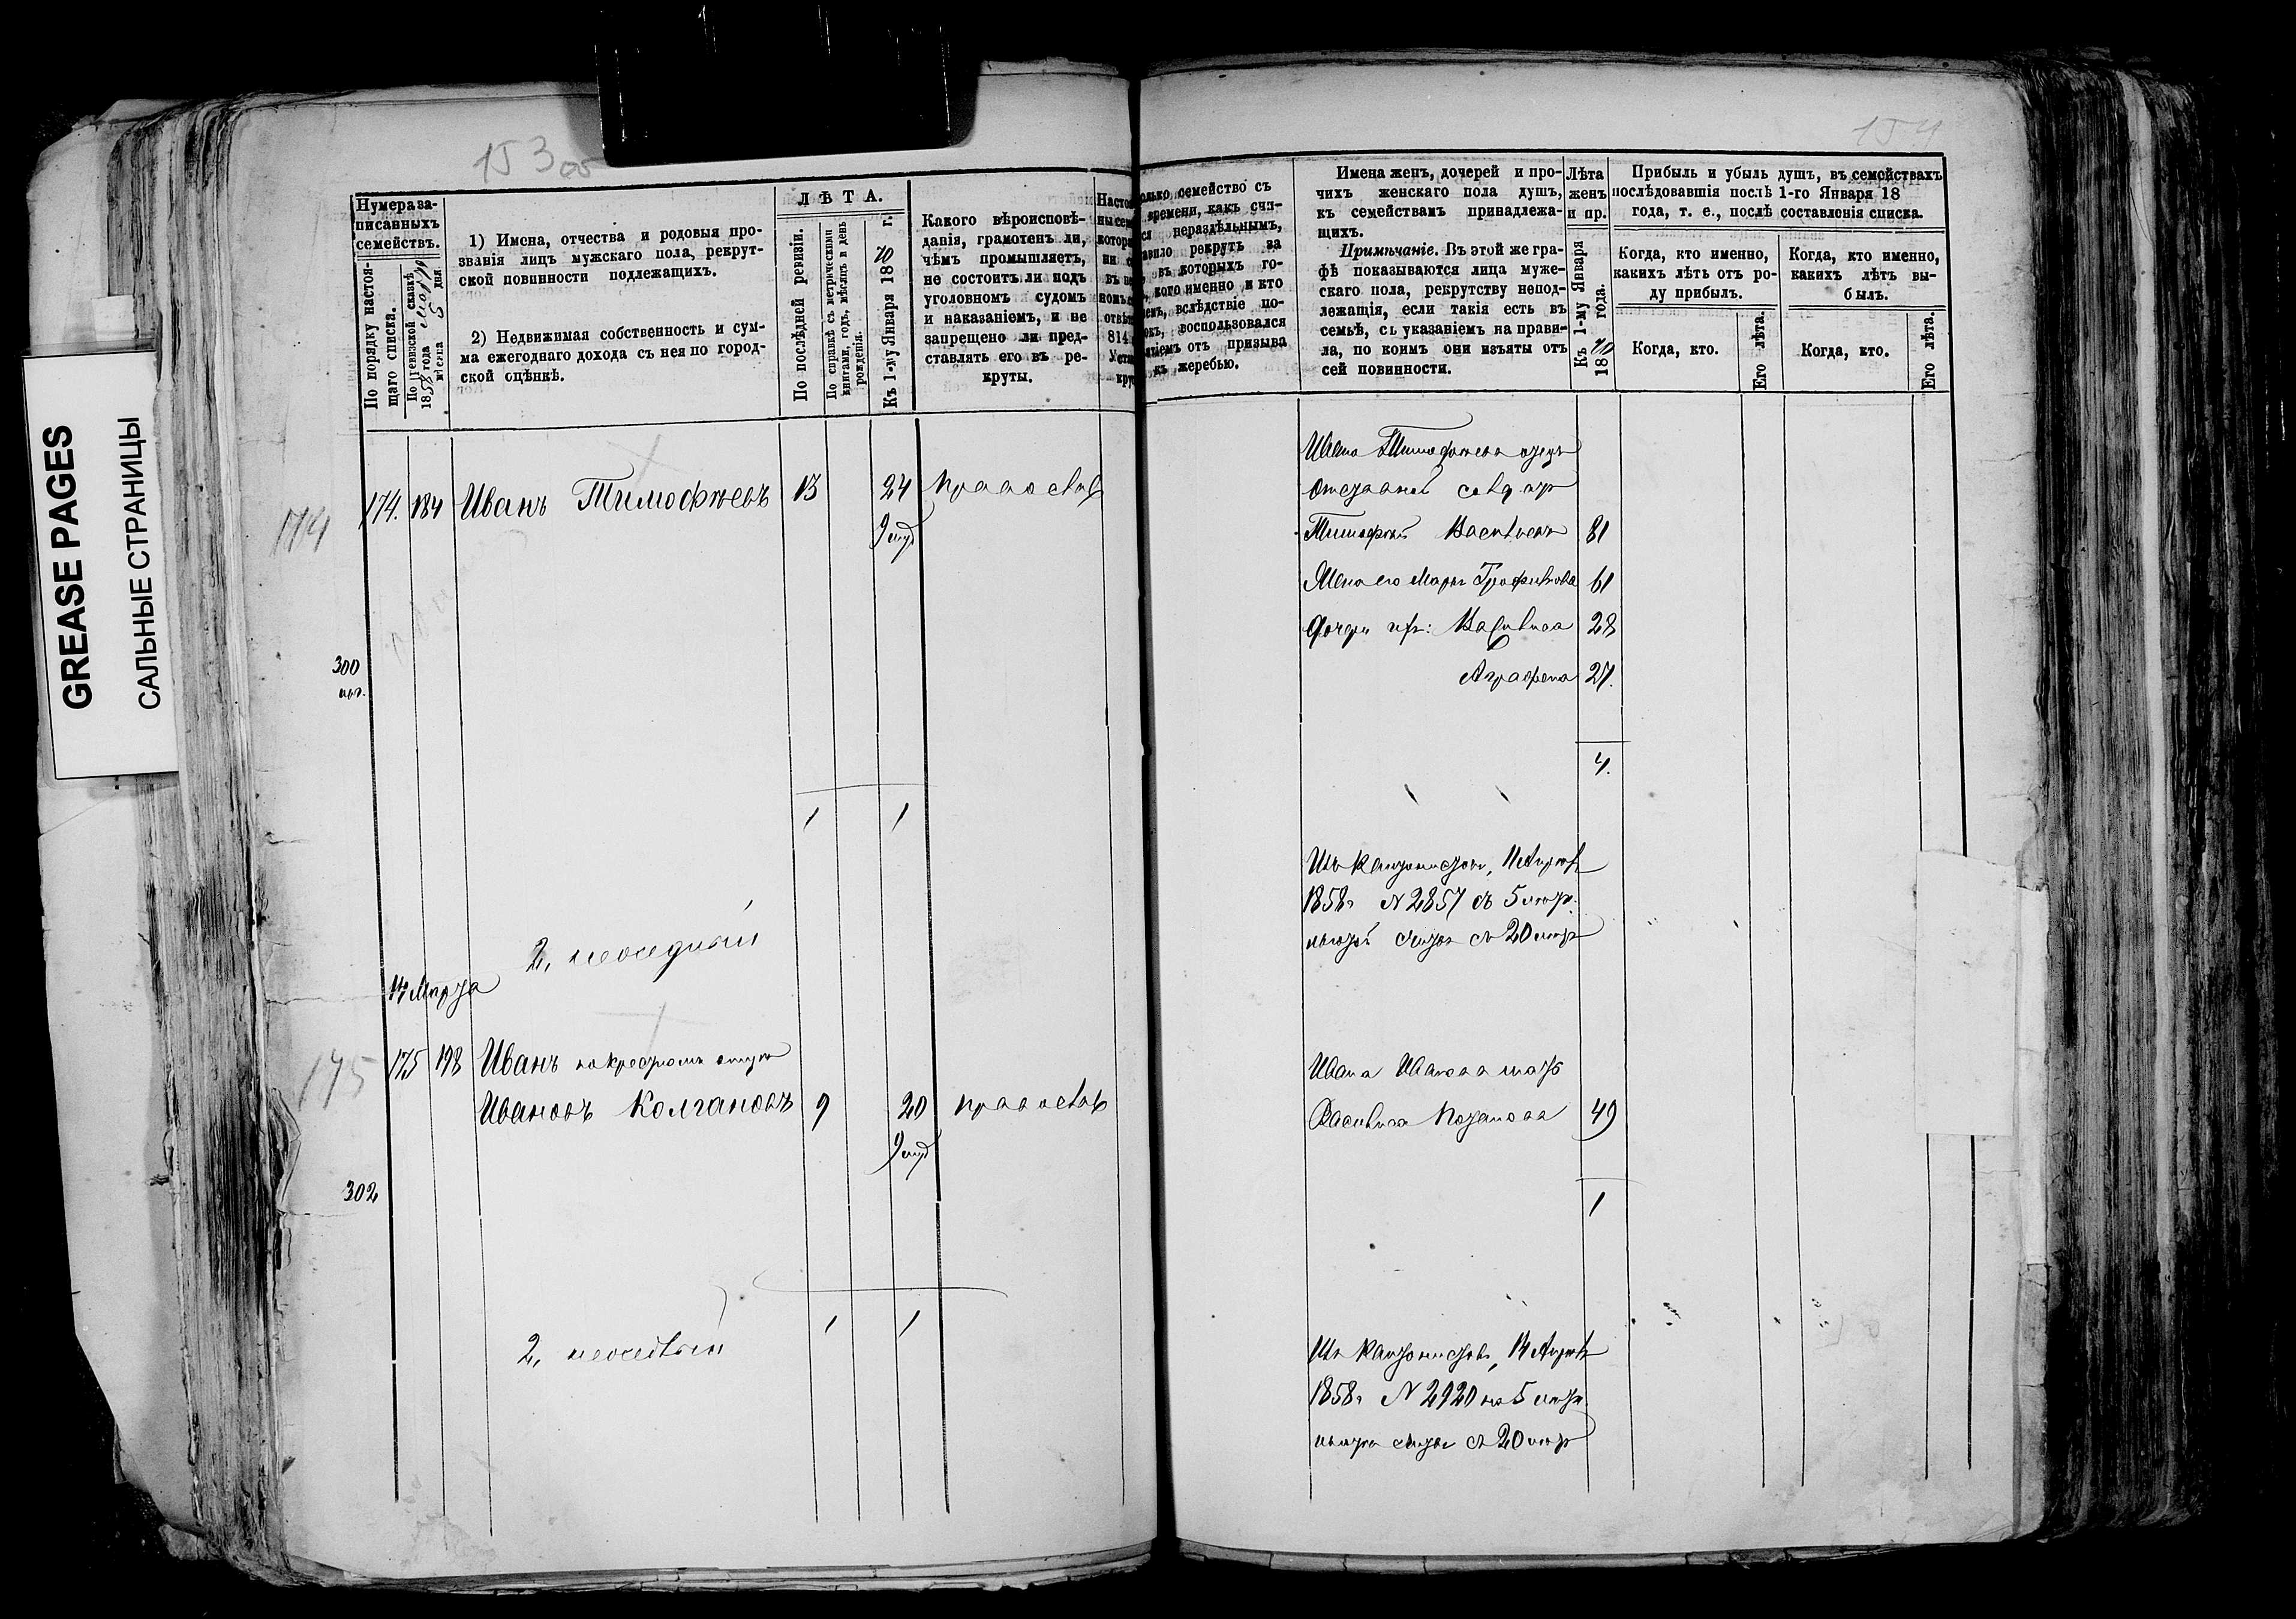 GREASE PAGES
САЛЬНЫЕ СТРАНИЦЫ
153об
Нумера за-
писанныхъ
семействъ.
По порядку настоя-
щаго списка.
По ревизской сказкѣ
1858 года
мѣсяца 5 дня.
1) Имена, отчества и родовыя про-
званія лицъ мужскаго пола, рекрут-
ской повинности подлежащихъ.
2) Недвижимая собственность и сум-
ма ежегоднаго дохода съ нея по город-
ской оцѣнкѣ.
ЛѢТА.
По послѣдней ревизіи.
По справкѣ съ метрическими
книгами, годъ, мѣсяцъ и день
рожденія.
Къ 1-му Января 1870 г.
Какого вѣроисповѣ-
данія, грамотенъ ли,
чѣмъ промышляетъ,
не состоитъ ли подъ
уголовномъ судомъ
и наказаніемъ, и не
запрещено ли пред-
ставлять его въ ре-
круты.
174
174. 184 Иванъ Тимофѣевъ 13 24 Православ
300
1 1
2, неоседлый
14 Марта
175
175 198 Иванъ по крестному отцу
Ивановъ Колгановъ 9 20 Православ
302
1 1
2, неоседлый
154
семейство съ
времени, какъ счи-
нераздѣльнымъ,
рекрутъ за
въ которыхъ го-
кого именно и кто
вслѣдствіе по-
воспользовался
отъ призыва
къ жеребью.
Имена женъ, дочерей и про-
чихъ женскаго пола душъ,
къ семействамъ принадлежа-
щихъ.
Примѣчаніе. Въ этой же гра-
фѣ показываются лица муже-
скаго пола, рекрутству непод-
лежащія, если такія есть въ
семьѣ, съ указаніемъ на прави-
ла, по коимъ они изъяты отъ
сей повинности.
Лѣта
женъ
и пр.
Къ 1-му Января
1870 года.
Прибыль и убыль душъ, въ семействахъ
послѣдовавшія послѣ 1-го Января 18
года, т. е., послѣ составленія списка.
Когда, кто именно,
какихъ лѣтъ отъ ро-
ду прибылъ.
Когда, кто именно,
какихъ лѣтъ вы-
былъ.
Когда, кто.
Его лѣта.
Когда, кто.
Его лѣта.
Ивана Тимофѣева отецъ
отставной
Тимофей Васильевъ 81
Жена его Марья Трофимова 61
Дочери ихъ: Василиса 28
Аграфена 27.
4.
Изъ кантонистовъ, 11 Апрѣля
1858 г N 2857 съ 5
съ 20
Ивана Иванова мать
Василиса Потапова 49
1
Изъ кантонистовъ, 14 Апрѣля
1858 г N 2920 5
съ 20